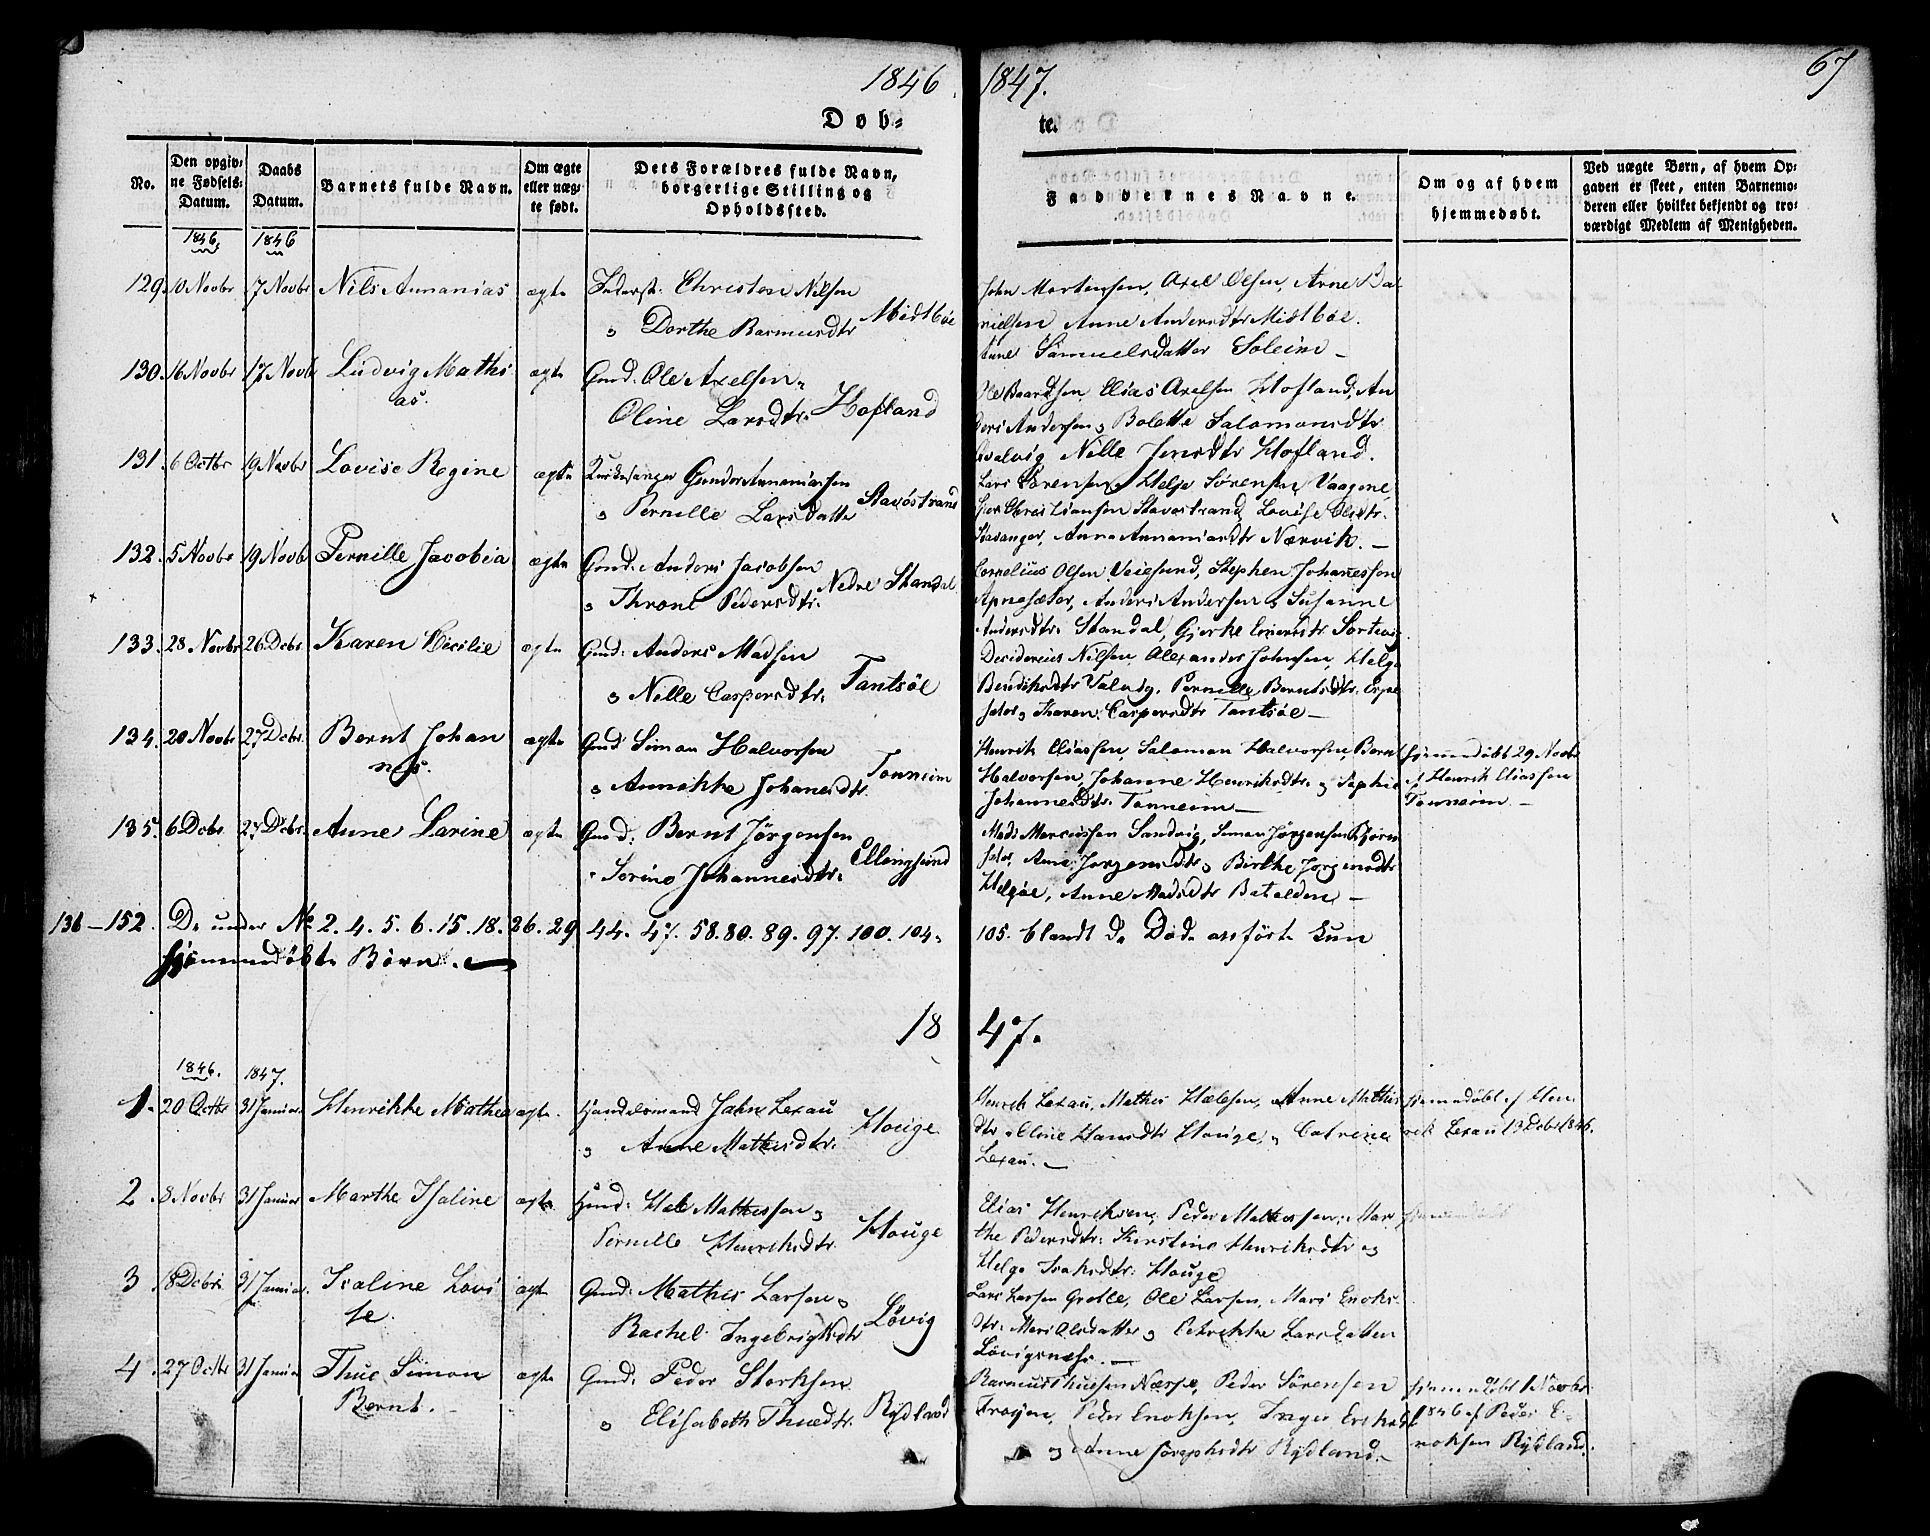 1846 1847. 67
Døb- te.
No. Den opgivne Fødsels-Datum. Daabs Datum. Barnets fulde Navn. Om ægte eller uægte født. Dets Forældres fulde Navn, borgerlige Stilling og Opholdssted. Faddernes Navne. Om og af hvem hjemmedøbt. Ved uægte Børn, af hvem Opgaven er skeet, enten Barnemoderen eller hvilket bekjendt og troværdigt Medlem af Menigheden.
1846. 1846
129. 10 Novbr 17 Novbr Nils Annanias ægte Christen Nilsen
" Dorthe Rasmusdtr Midtbøe
John Mortensen, Axel Olsen, Arne Da-
nielsen Anne Andersdtr Midtbøe.
Anne Samuelsdatter Soleim –
130. 16 Novbr 17 Novb Ludvig Mathi
as. ægte Gmd. Ole Axelsen
Oline Larsdtr. Hofland
Ole Baardsen Elias Axelsen Hofland, An
ders Andersen, Bolette Salomonsdtr
Nille Jensdtr Hofland.
131. 6 Octbr 19 Novbr Lovise Regine ægte Kirkesanger Gunder Annaniassen
" Pernille Larsdatter Stavøstrand
Lars Sørensen, Helje Sørensen Vaagene,
Christiansen Stavøstrand, Lovise Olsdtr.
Stavanger, Anne Annaniasdtr Nærvik. –
132. 5 Novbr 19 Novb Pernille Jacobia ægte Gmd. Anders Jacobsen
" Throne Pedersdtr. Nedre Standal
Cornelius Olsen Veiesund, Stephen Johannessen
Apnesæter, Anders Andersen, Susanne
Andersdtr. Standal, Gjerke
133. 28 Novbr 26 Debr. Karen Cicilie ægte Gmd: Anders Madsen
" Nille Caspersdtr. Tantsøe
Desiderius Nilsen, Alexander Johnsen, Helge
Bendiksdtr Valvig, Pernille Berntsdtr.
Karen Caspersdtr Tantsøe –
134. 20 Novbr 27 Debr. Bernt Johan
nes. ægte Gmd Simon Halvorsen
" Annikke Johansdtr. Tonneim
Henrik Eliassen, Salomon Halvorsen, Bernt
Halvorsen, Johanne Henriksdtr. og Sophie
Johannesdtr. Tonneim –
hjemmedøbt 29 Novbr
af Henrik Eliassen
Tonneim –
135. 6 Debr. 27 Debr. Anne Larine ægte Gmd: Bernt Jørgensen
" Sorine Johannesdtr. Ellingsund
Mads Marcussen Sandvig, Simon Jørgensen Bjørn
Anne Jørgensdtr, Birthe Jørgensdtr
Helgøe, Anne Madsdtr Batalden –
136–152. De under No 2. 4. 5. 6. 15. 18. 26. 29 44. 47. 58. 80. 89. 97. 100. 104. 105. blandt de Døde anførte kun
hjemmedøbte Børn. –
18 47.
1846. 1847.
1. 20 Octbr 31 Januar Henrikke Mathea ægte. Handelsmand Jahn Lexau
" Anne Mathisdtr. Houge
Henrik Lexau, Mathis Helesen, Anne Mathis
dtr, Oline Hansdtr Houge, Catrine
Lexau. –
hjemmedøbt af Hen
rik Lexau 13 Debr 1846.
2. 8 Novbr 31 Januar Marthe Isaline ægte Gmd: Hele Mathissen,
Pernille Henriksdtr. Houge
Elias Henriksen, Peder Mathissen, Mar
the Pedersdtr: Kirstine Henriksdtr og
Helge Isaksdtr: Houge
hjemmedøbt
3. 8 Debr. 31 Januar. Isaline Lovi
se. ægte Gmd: Mathis Larsen,
Rachel Ingebrigtsdtr Løvig
Lars Larsen Grotle, Ole Larsen, Mari Enoks
dtr. Mari Olsdatter, Petrikke Larsdatter
Løvignæss. –
4. 27 Octbr 31 Januar Thue Simon
Bernt. ægte Gmd: Peder Storksen
" Elisabeth Thuedtr. Rydland
Rasmus Thuesen Næsse, Peder Sørensen
Frøyen, Peder Enoksen, Inger Eriksdtr
og Anne Josephsdtr Rydland. –
hjemmedøbt 1 Novbr
1846 af Peder E-
noksen Rydland.